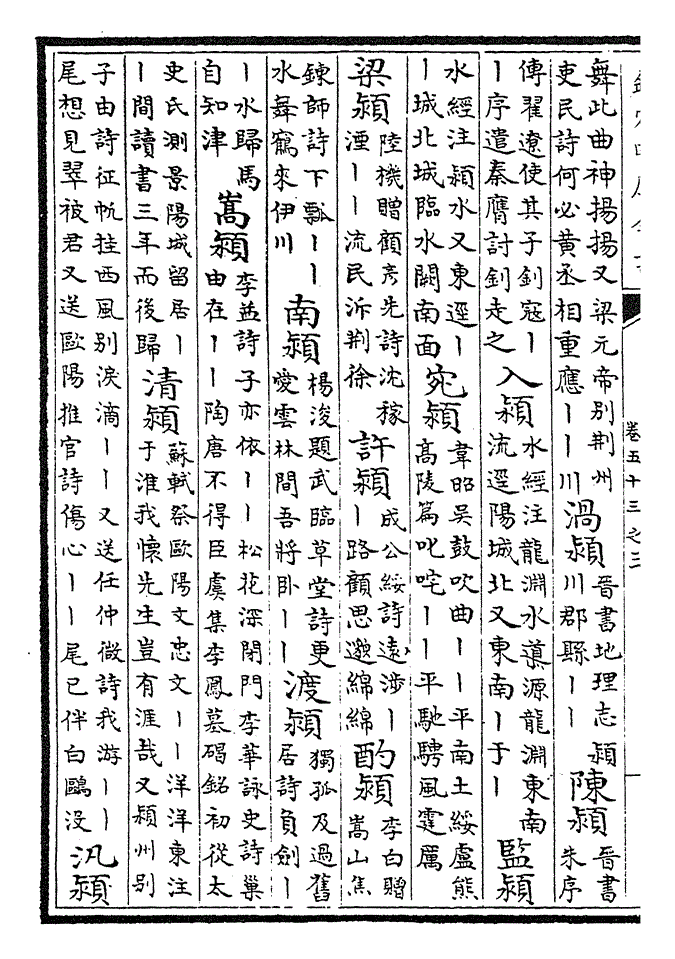 卷五十三之三
舞此曲神揚揚又梁元帝别荆州
吏民詩何必黄丞相重應丨丨川
渦潁
晉書地理志潁
川郡縣丨丨
陳潁
晉書
朱序
傳翟遼使其子釗寇丨
丨序遣秦膺討釗走之
入潁
水經注龍淵水導源龍淵東南
流逕陽城北又東南丨于丨
監潁
水經注潁水又東逕丨
丨城北城臨水闕南面
宛潁
韋昭吳鼓吹曲丨丨平南土綏盧熊
高陵篇叱咤丨丨平馳騁風霆厲
梁潁
陸機贈顧彥先詩沈稼
湮丨丨流民泝荆徐
許潁
成公綏詩遠涉丨
丨路顧思邈綿綿
酌潁
李白贈
嵩山焦
鍊師詩下瓢丨丨
水舞鶴來伊川
南潁
楊浚題武臨草堂詩更
愛雲林間吾將卧丨丨
渡潁
獨孤及過舊
居詩負劍丨
丨水歸馬
自知津
嵩潁
李益詩子亦依丨丨松花深閉門李華詠史詩巢
由在丨丨陶唐不得臣虞集李鳳墓碣銘初從太
史氏測景陽城留居丨
丨間讀書三年而後歸
清潁
蘇軾祭歐陽文忠文丨丨洋洋東注
于淮我懷先生豈有涯哉又潁州别
子由詩征帆挂西風别淚滴丨丨又送任仲微詩我游丨丨
尾想見翠被君又送歐陽推官詩傷心丨丨尾已伴白鷗没
汎潁